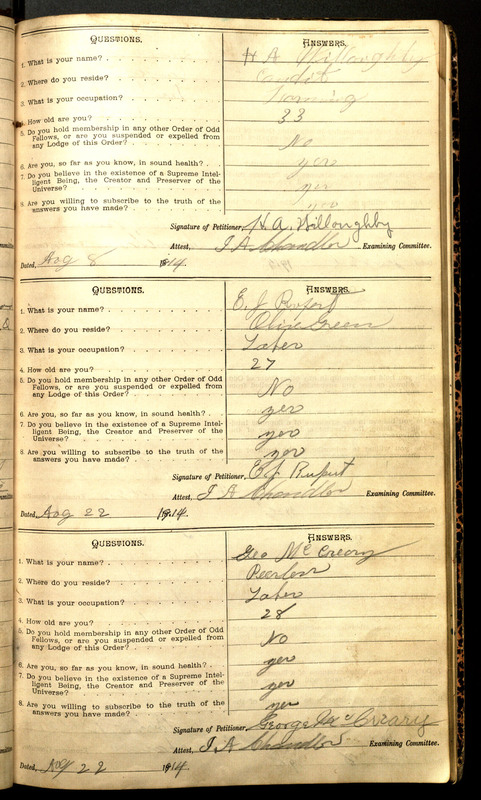 QUESTIONS. ANSWERS.
1. What is your name? H A Willoughby
2. Where do you reside?
3. What is your occupation? Farming
4. How old are you? 33
5. Do you hold membership in any other Order of Odd
Fellows, or are you suspended or expelled from
any Lodge of this Order? No
6. Are you, so far as you know, in sound health? yes
7. Do you believe in the existence of a Supreme Intel-
ligent Being, the Creator and Preserver of the
Universe? yes
8. Are you willing to subscribe to the truth of the
answers you have made? yes
Signature of Petitioner, H. A. Willoughby
Attest, I A Chandler Examining Committee.
Dated, Aug 8 1914.
QUESTIONS. ANSWERS.
1. What is your name? E. J Rupert
2. Where do you reside? Olive Green
3. What is your occupation? Laber
4. How old are you? 27
5. Do you hold membership in any other Order of Odd
Fellows, or are you suspended or expelled from
any Lodge of this Order? No
6. Are you, so far as you know, in sound health? yes
7. Do you believe in the existence of a Supreme Intel-
ligent Being, the Creator and Preserver of the
Universe? yes
8. Are you willing to subscribe to the truth of the
answers you have made? yes
Signature of Petitioner, E. J. Rupert
Attest, I A Chandler Examining Committee.
Dated, Aug 22 1914.
QUESTIONS. ANSWERS.
1. What is your name? Geo McCreary
2. Where do you reside? Peerless
3. What is your occupation? Laber
4. How old are you? 28
5. Do you hold membership in any other Order of Odd
Fellows, or are you suspended or expelled from
any Lodge of this Order? No
6. Are you, so far as you know, in sound health? yes
7. Do you believe in the existence of a Supreme Intel-
ligent Being, the Creator and Preserver of the
Universe? yes
8. Are you willing to subscribe to the truth of the
answers you have made? yes
Signature of Petitioner, George McCreary
Attest, I. A Chandler Examining Committee.
Dated, Aug 22 1914.